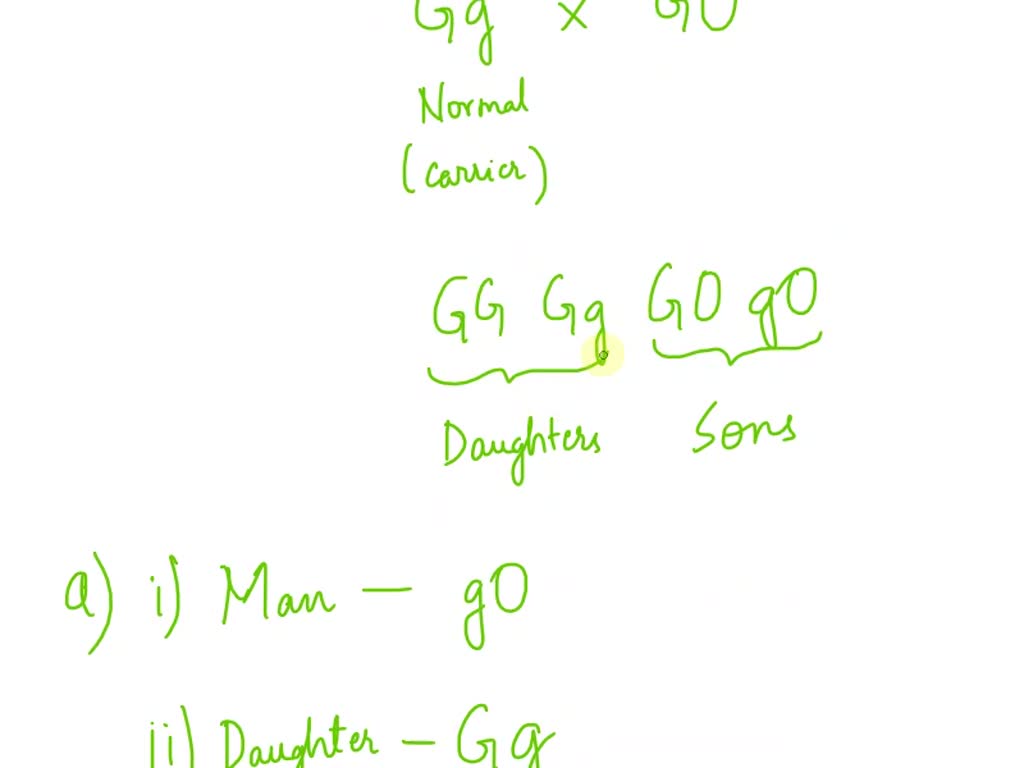 Gg × GO
Normal
(carrier)
GG Gg GO gO
Daughters Sons
a) i) Man – gO
ii) Daughter – Gg